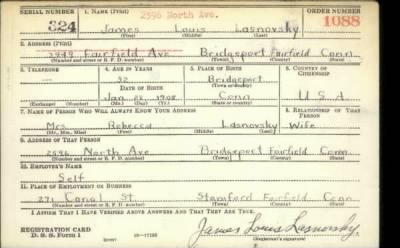 SERIAL NUMBER 1. NAME (Print) 2596 North Ave. ORDER NUMBER
324 James Louis Lasnovsky 1088
(First) (Middle) (Last)
2. ADDRESS (Print)
Fairfield Ave Bridgeport Fairfield Conn.
(Number and street or R. F. D. number) (Town) (County) (State)
3. TELEPHONE 4. AGE IN YEARS 5. PLACE OF BIRTH 6. COUNTRY OF CITIZENSHIP
32 Bridgeport
DATE OF BIRTH (Town or county)
Jan 1908 Conn. U.S.A.
(Exchange) (Number) (Mo.) (Day) (Yr.) (State or country)
7. NAME OF PERSON WHO WILL ALWAYS KNOW YOUR ADDRESS 8. RELATIONSHIP OF THAT PERSON
Mrs. Rebecca Lasnovsky Wife
(Mr., Mrs., Miss) (First) (Middle) (Last)
9. ADDRESS OF THAT PERSON
2596 North Ave Bridgeport Fairfield Conn
(Number and street or R. F. D. number) (Town) (County) (State)
10. EMPLOYER'S NAME
Self
11. PLACE OF EMPLOYMENT OR BUSINESS
291 Canal St. Stamford Fairfield Conn
(Number and street or R. F. D. number) (Town) (County) (State)
I AFFIRM THAT I HAVE VERIFIED ABOVE ANSWERS AND THAT THEY ARE TRUE.
REGISTRATION CARD
D. S. S. Form 1 James Louis Lasnovsky
(Registrant's signature)